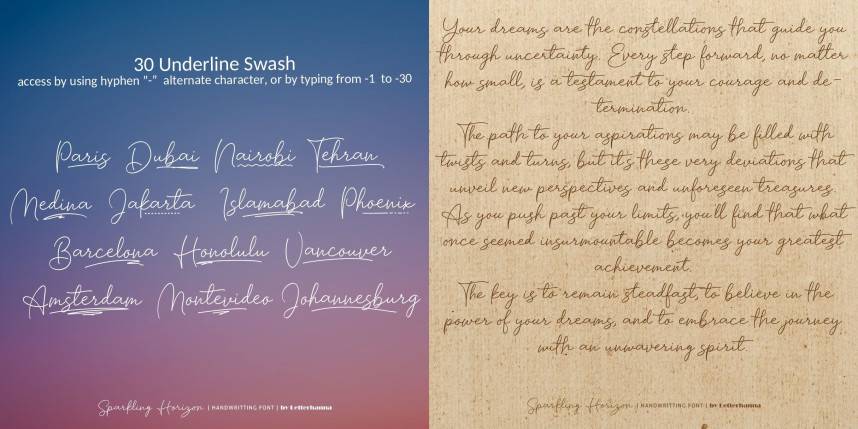 30 Underline Swash
access by using hyphen "-" alternate character, or by typing from -1 to -30
Paris Dubai Nairobi Tehran
Medina Jakarta Islamabad Phoenix
Barcelona Honolulu Vancouver
Amsterdam Montevideo Johannesburg
Sparkling Horizon | HANDWRITTING FONT | by Letterhanna
Your dreams are the constellations that guide you
through uncertainty. Every step forward, no matter
how small, is a testament to your courage and de-
termination.
The path to your aspirations may be filled with
twists and turns, but it's these very deviations that
unveil new perspectives and unforeseen treasures.
As you push past your limits, you'll find that what
once seemed insurmountable becomes your greatest
achievement.
The key is to remain steadfast, to believe in the
power of your dreams, and to embrace the journey
with an unwavering spirit.
Sparkling Horizon | HANDWRITTING FONT | by Letterhanna